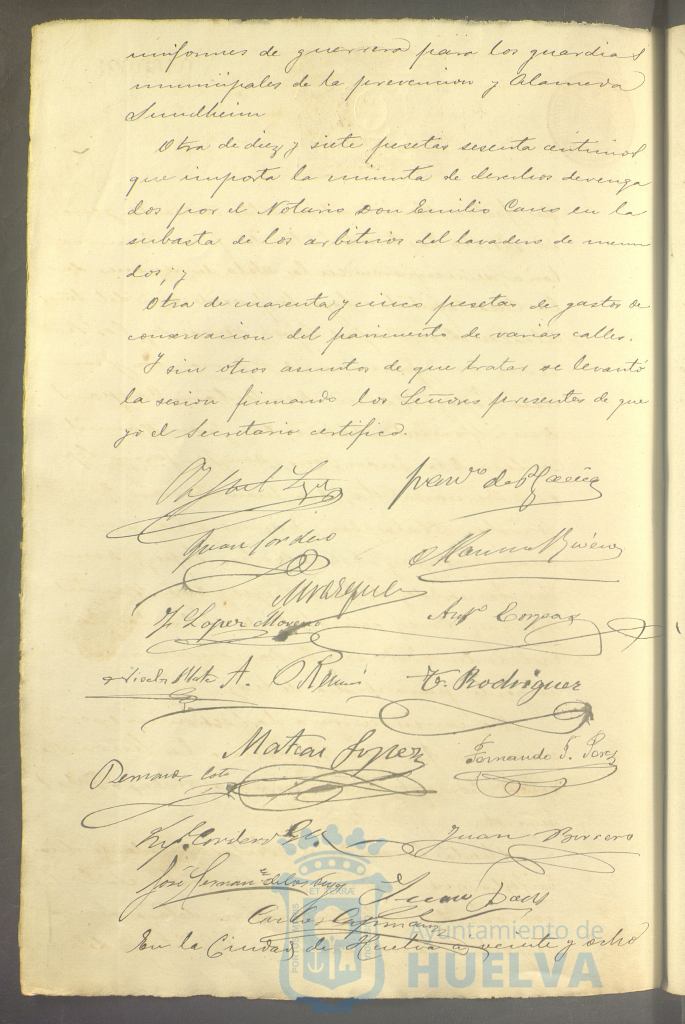 uniformes de guerrera para los guardias
municipales de la prevencion y Alameda
Sundheim
Otra de diez y siete pesetas sesenta centimos
que importa la minuta de derechos devenga
dos por el Notario Don Emilio Cano en la
subasta de los arbitrios del lavadero de menu
dos; y
Otra de cuarenta y cinco pesetas de gastos de
conservacion del pavimento de varias calles.
Y sin otros asuntos de que tratar se levantó
la sesion firmando los Señores presentes de que
yo el Secretario certifico.
Juan Cordero
J. Lopez Moreno
A.
T. Rodriguez
Matias Lopez
Fernando
Cordero
Juan Borrero
José
Juan
En la Ciudad de Huelva a veinte y ocho
Ayuntamiento de
HUELVA